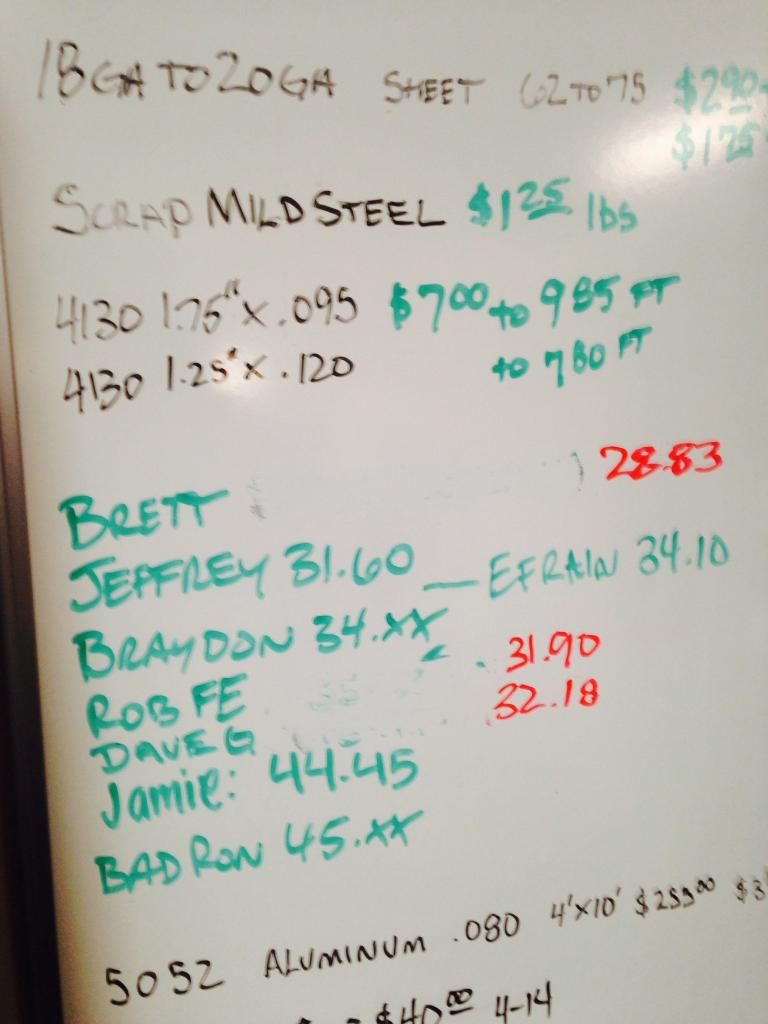 18GA TO 20GA SHEET 62 TO 75 $290
$175
SCRAP MILD STEEL $1.25 lbs
4130 1.75" X .095 $7.00 to 985 FT
4130 1.25" X .120 to 780 FT
BRETT 28.83
JEFFREY 31.60 — EFRAIN 34.10
BRAYDON 34.XX
ROB FE 31.90
DAVE G 32.18
Jamie: 44.45
BAD RON 45.XX
5052 ALUMINUM .080 4'X10' $255.00
$40.00 4-14